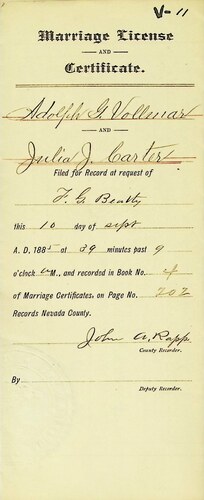 V-11
Marriage License
AND
Certificate.
Adolph G. Vollmar
AND
Julia J. Carter
Filed for Record at request of
F. G. Beatty
this 10 day of Sept
A. D. 1885 at 39 minutes past 9
o'clock a M., and recorded in Book No. 4
of Marriage Certificates, on Page No. 202
Records Nevada County.
John A. Rapp
County Recorder.
By
Deputy Recorder.